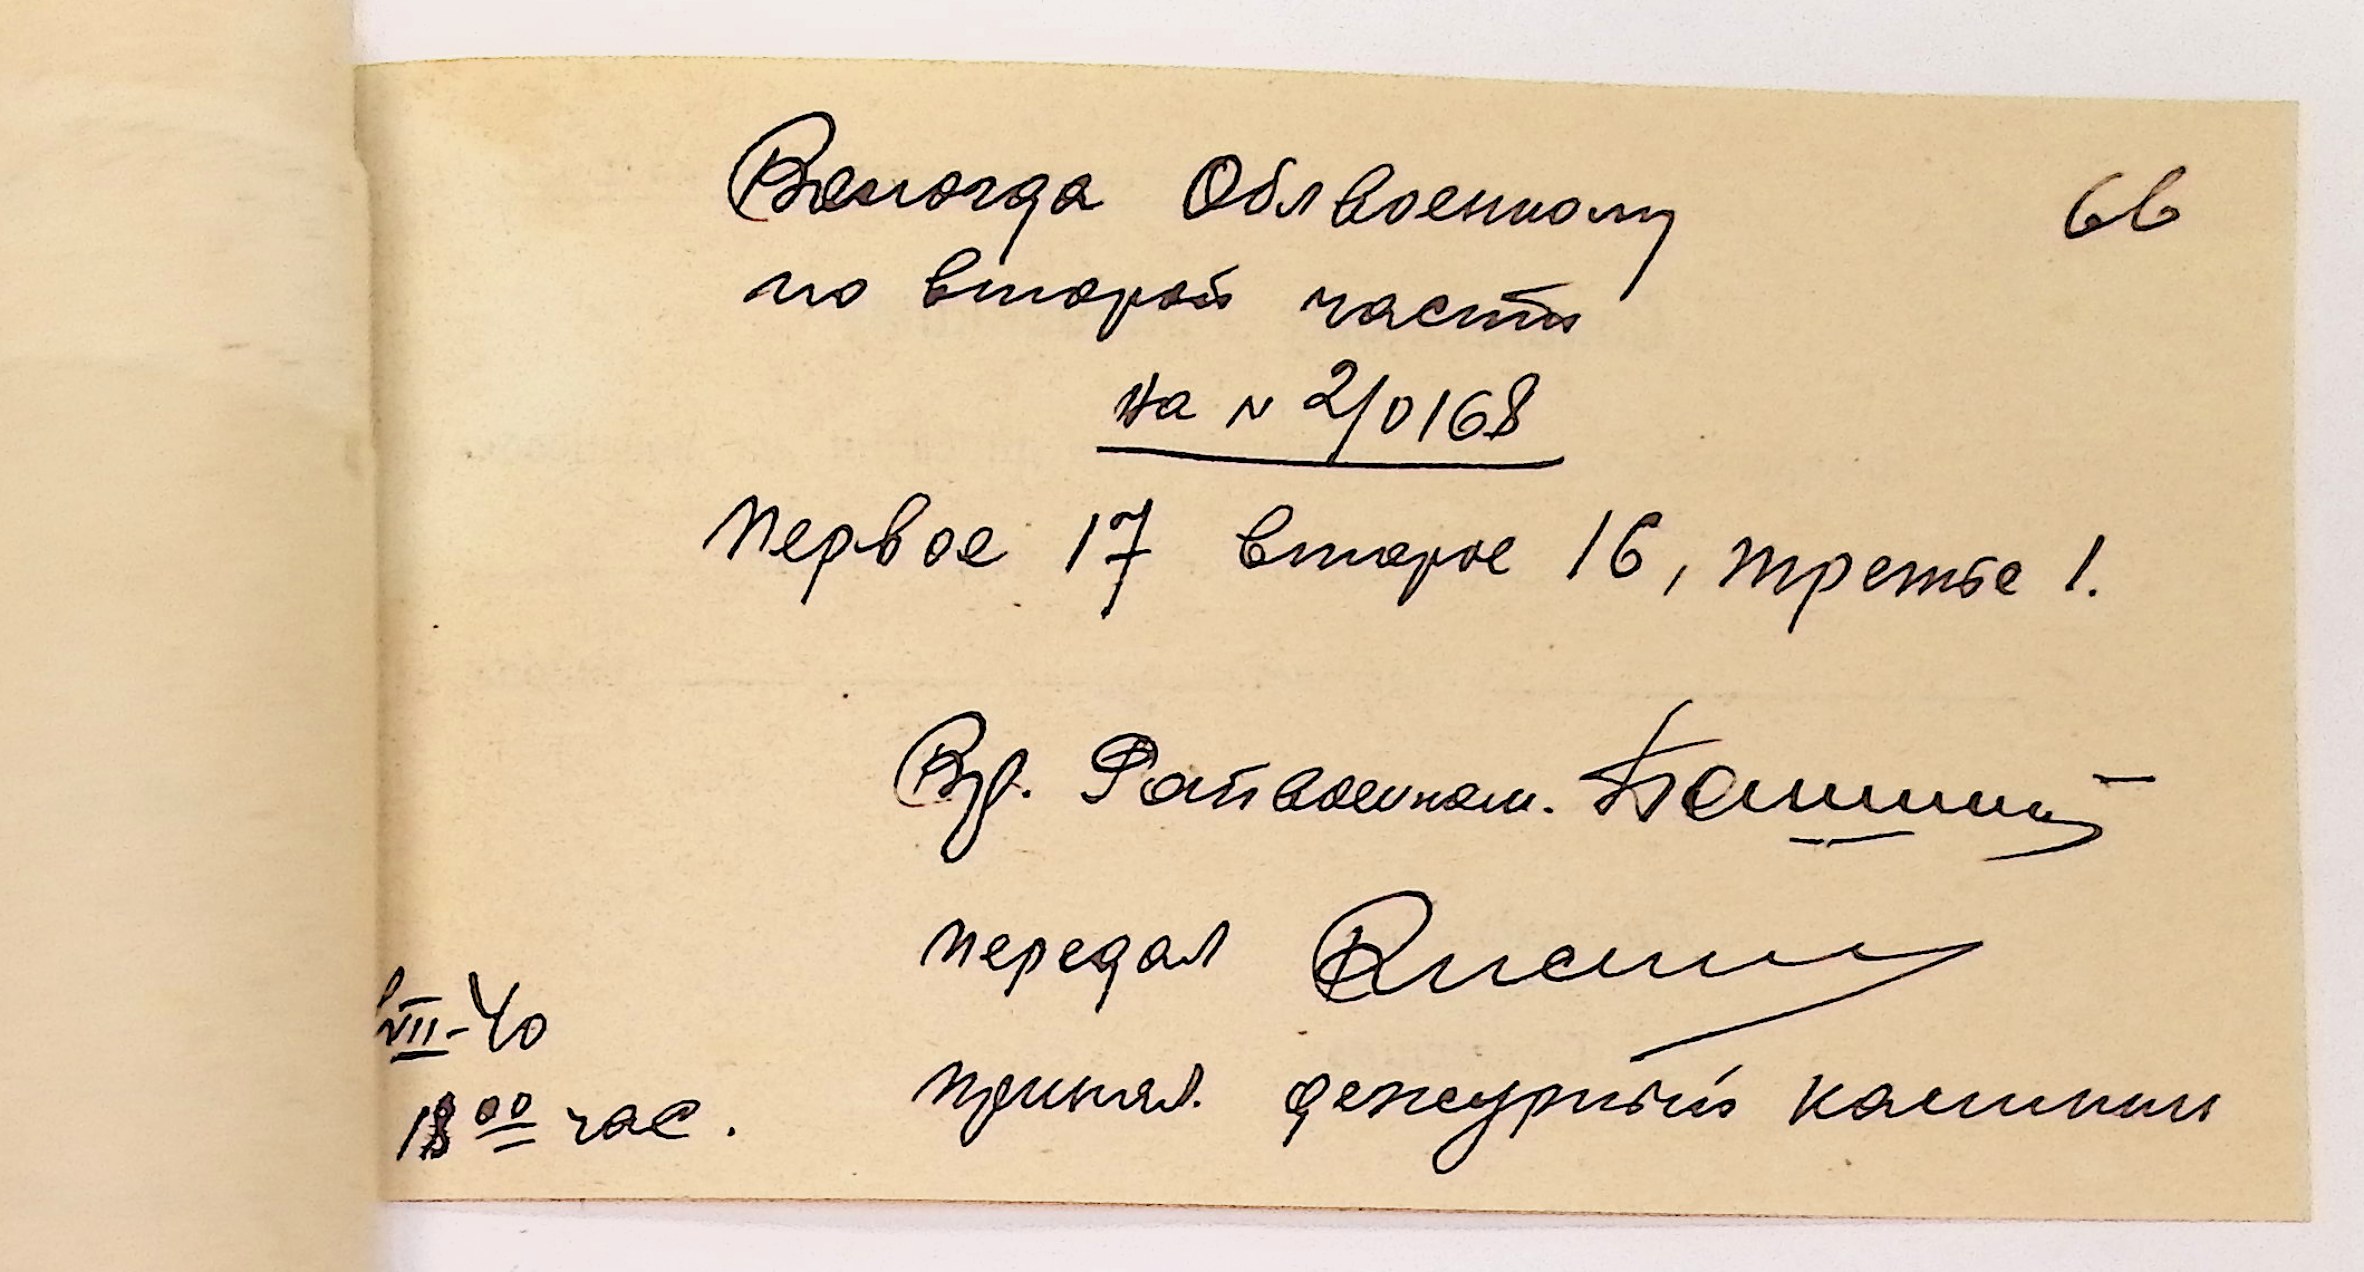 Вологда Облвоенкому
66
по второй части
на N 2/0168
Первое 17 второе 16, третье 1.
Вр. Райвоенком.
передал
VII-40
18 00 час.
принял. дежурный